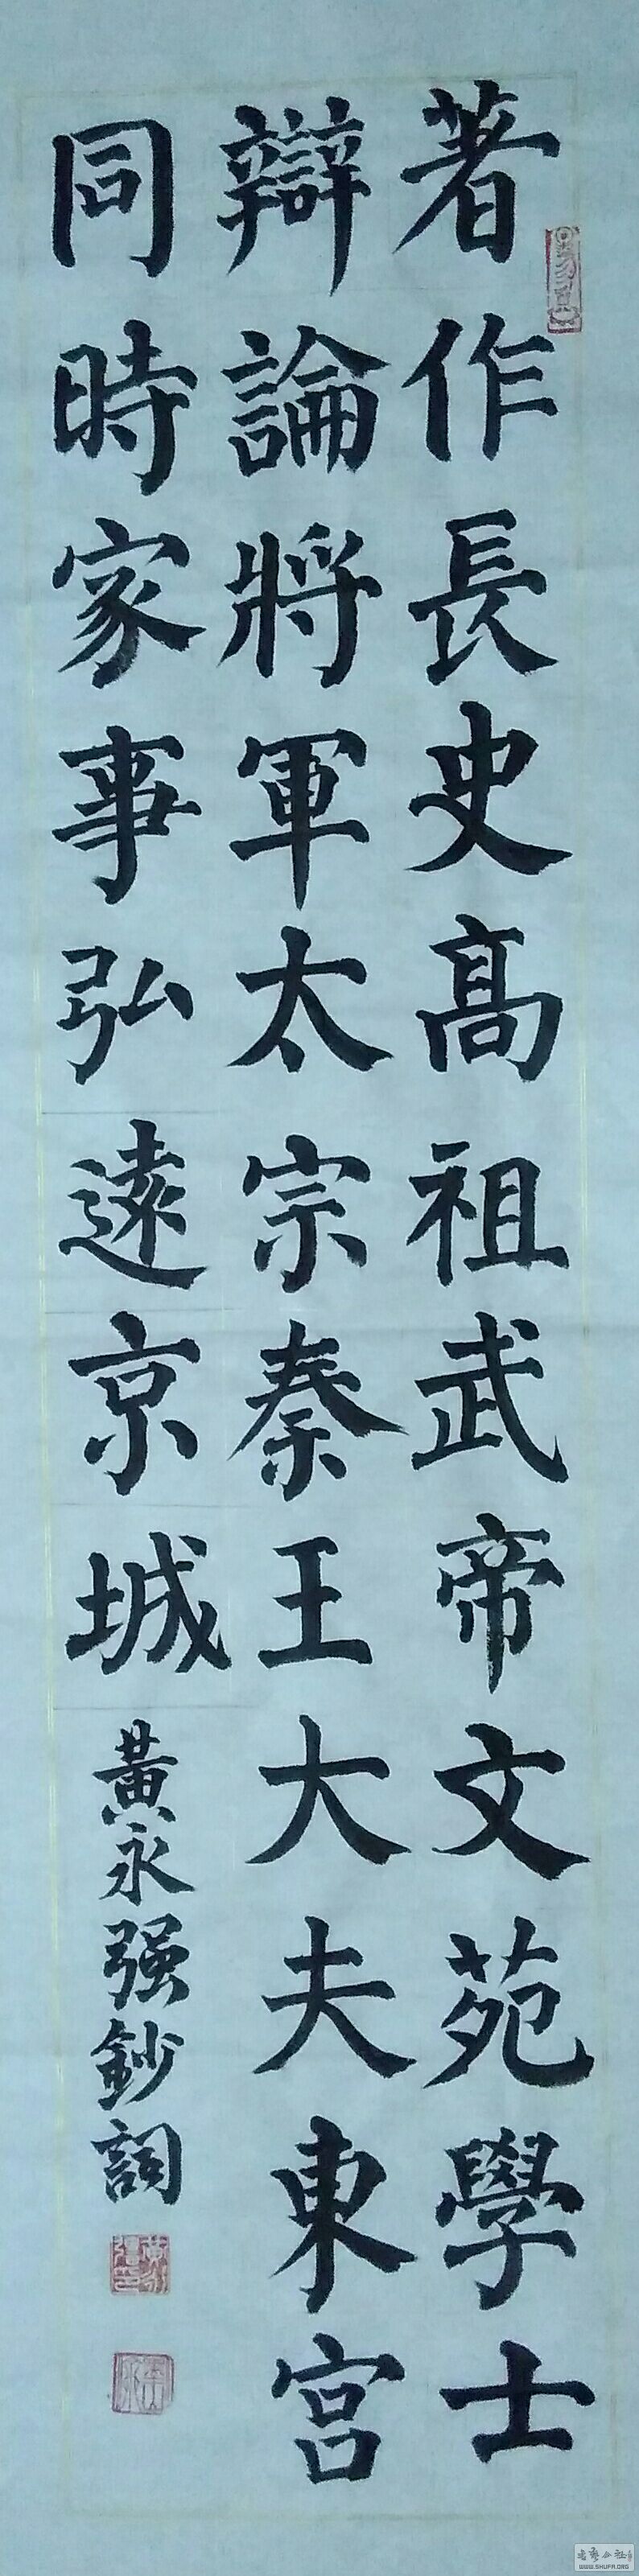 著作長史高祖武帝文苑學士
辯論將軍太宗秦王大夫東宮
同時家事弘遠京城
黃永强鈔詞
WWW.SHUFA.ORG